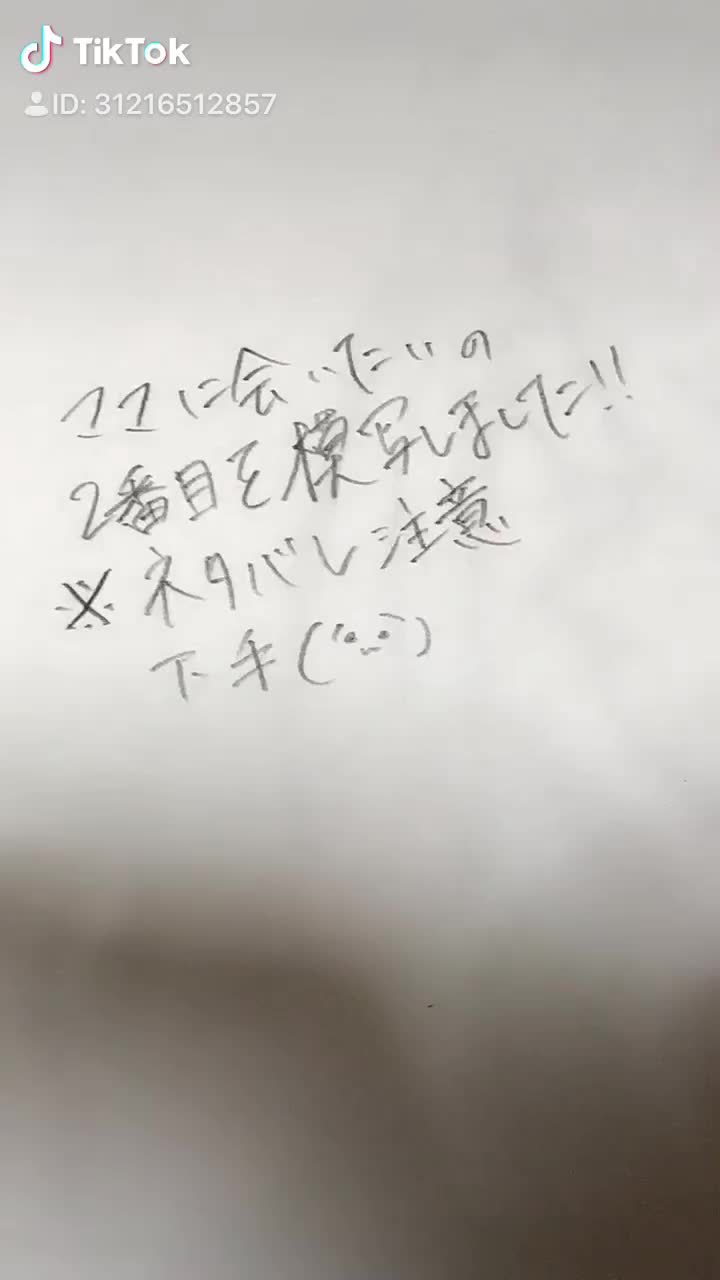 TikTok
ID: 31216512857
11に会いたいの
2番目を模写しました!!
※ネタバレ注意
下手